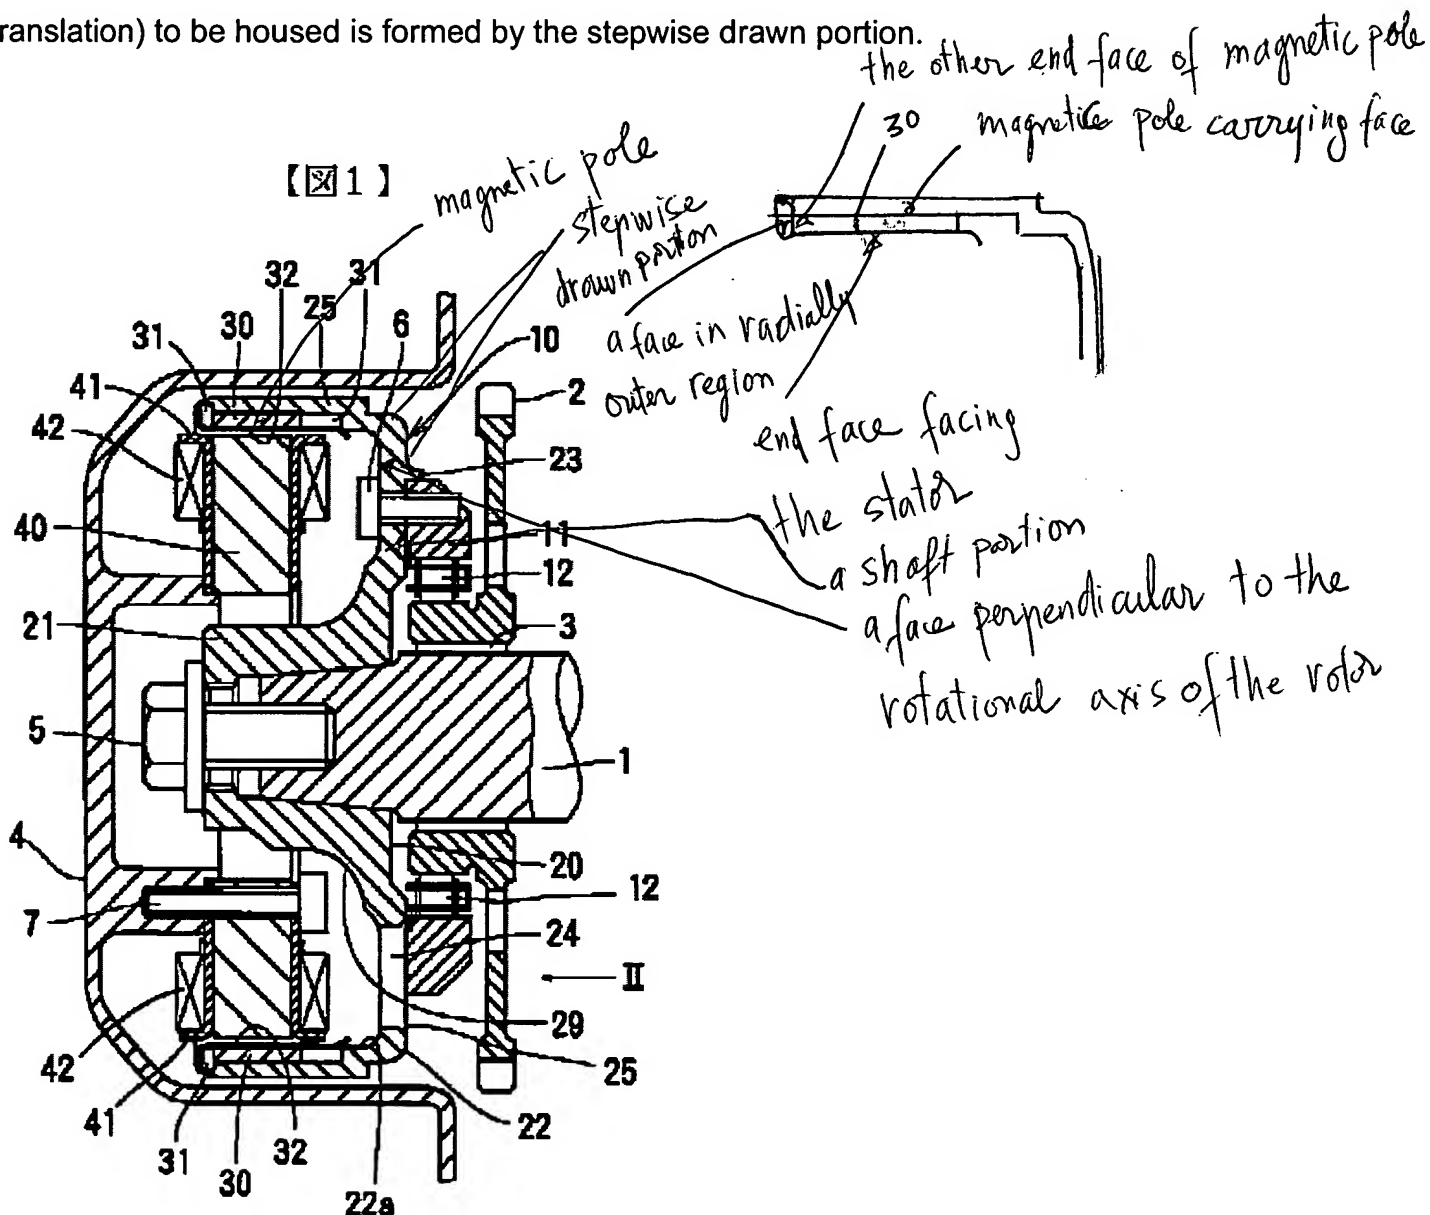 ranslation) to be housed is formed by the stepwise drawn portion.
the other end face of magnetic pole
30
magnetic pole carrying face
【図1】
magnetic pole
stepwise
drawn portion
a face in radially
outer region
end face facing
the stator
a shaft portion
a face perpendicular to the
rotational axis of the rotor
32
31
25
6
30
31
10
2
41
42
23
40
11
12
21
3
5
1
4
20
12
7
24
II
29
42
25
41
22
31
32
30
22a